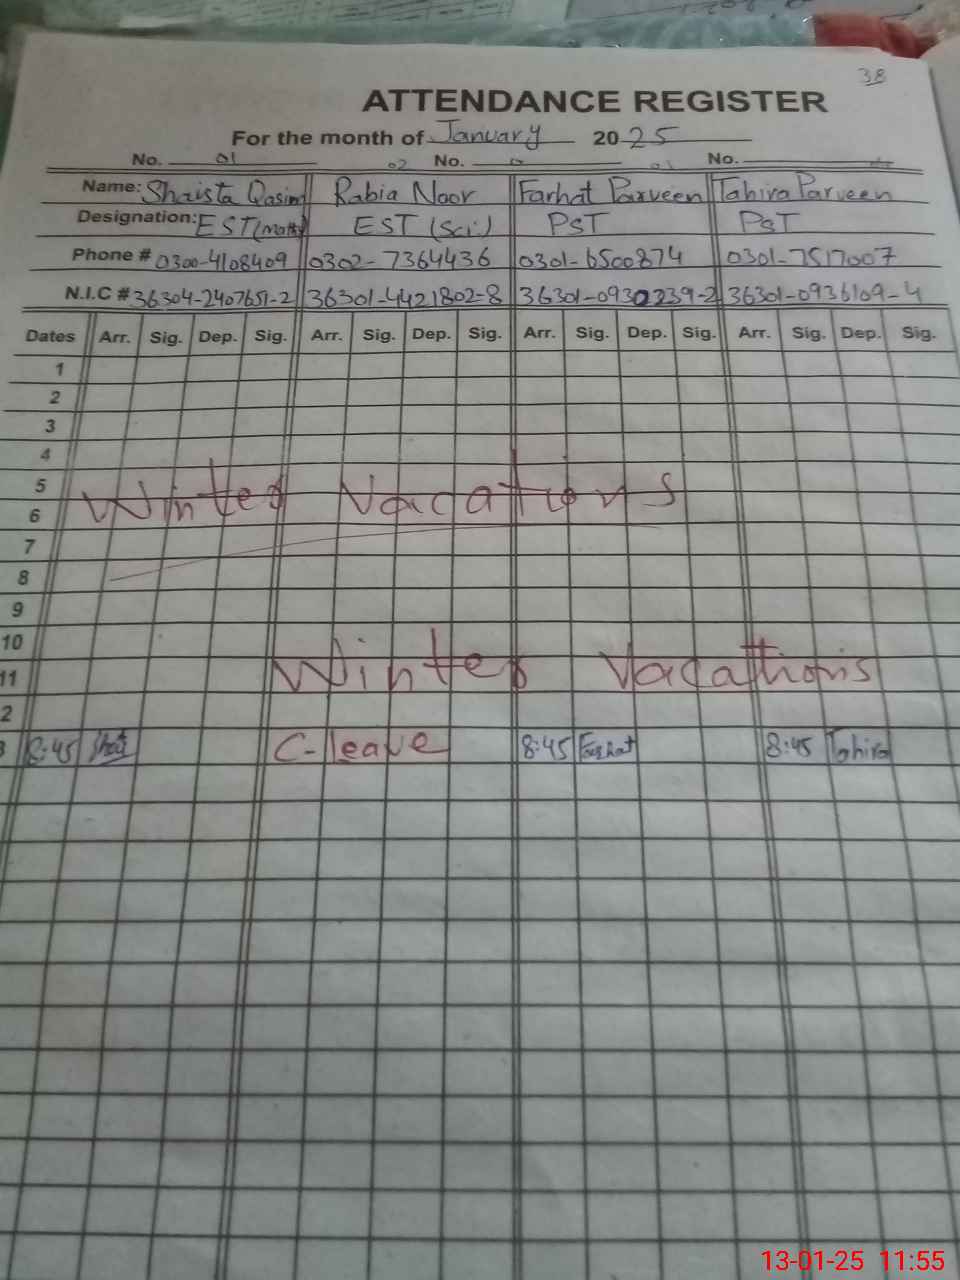 38
ATTENDANCE REGISTER
For the month of January 2025
No. 01 02 No. 01 No.
Name: Shaista Qasim Rabia Noor Farhat Parveen Tahira Parveen
Designation: EST (Math) EST (Sci:) PST PST
Phone # 0300-4108409 0302-7364436 0301-6500874 0301-7517007
N.I.C # 36304-2407651-2 36301-4421802-8 36301-0930239-2 36301-0936109-4
Dates Arr. Sig. Dep. Sig. Arr. Sig. Dep. Sig. Arr. Sig. Dep. Sig. Arr. Sig. Dep. Sig.
1
2
3
4
5
Winter Vacations
6
7
8
9
10
11 Winter Vacations
2
3 8:45 C-leave 8:45 Farhat 8:45 Tahira
13-01-25 11:55